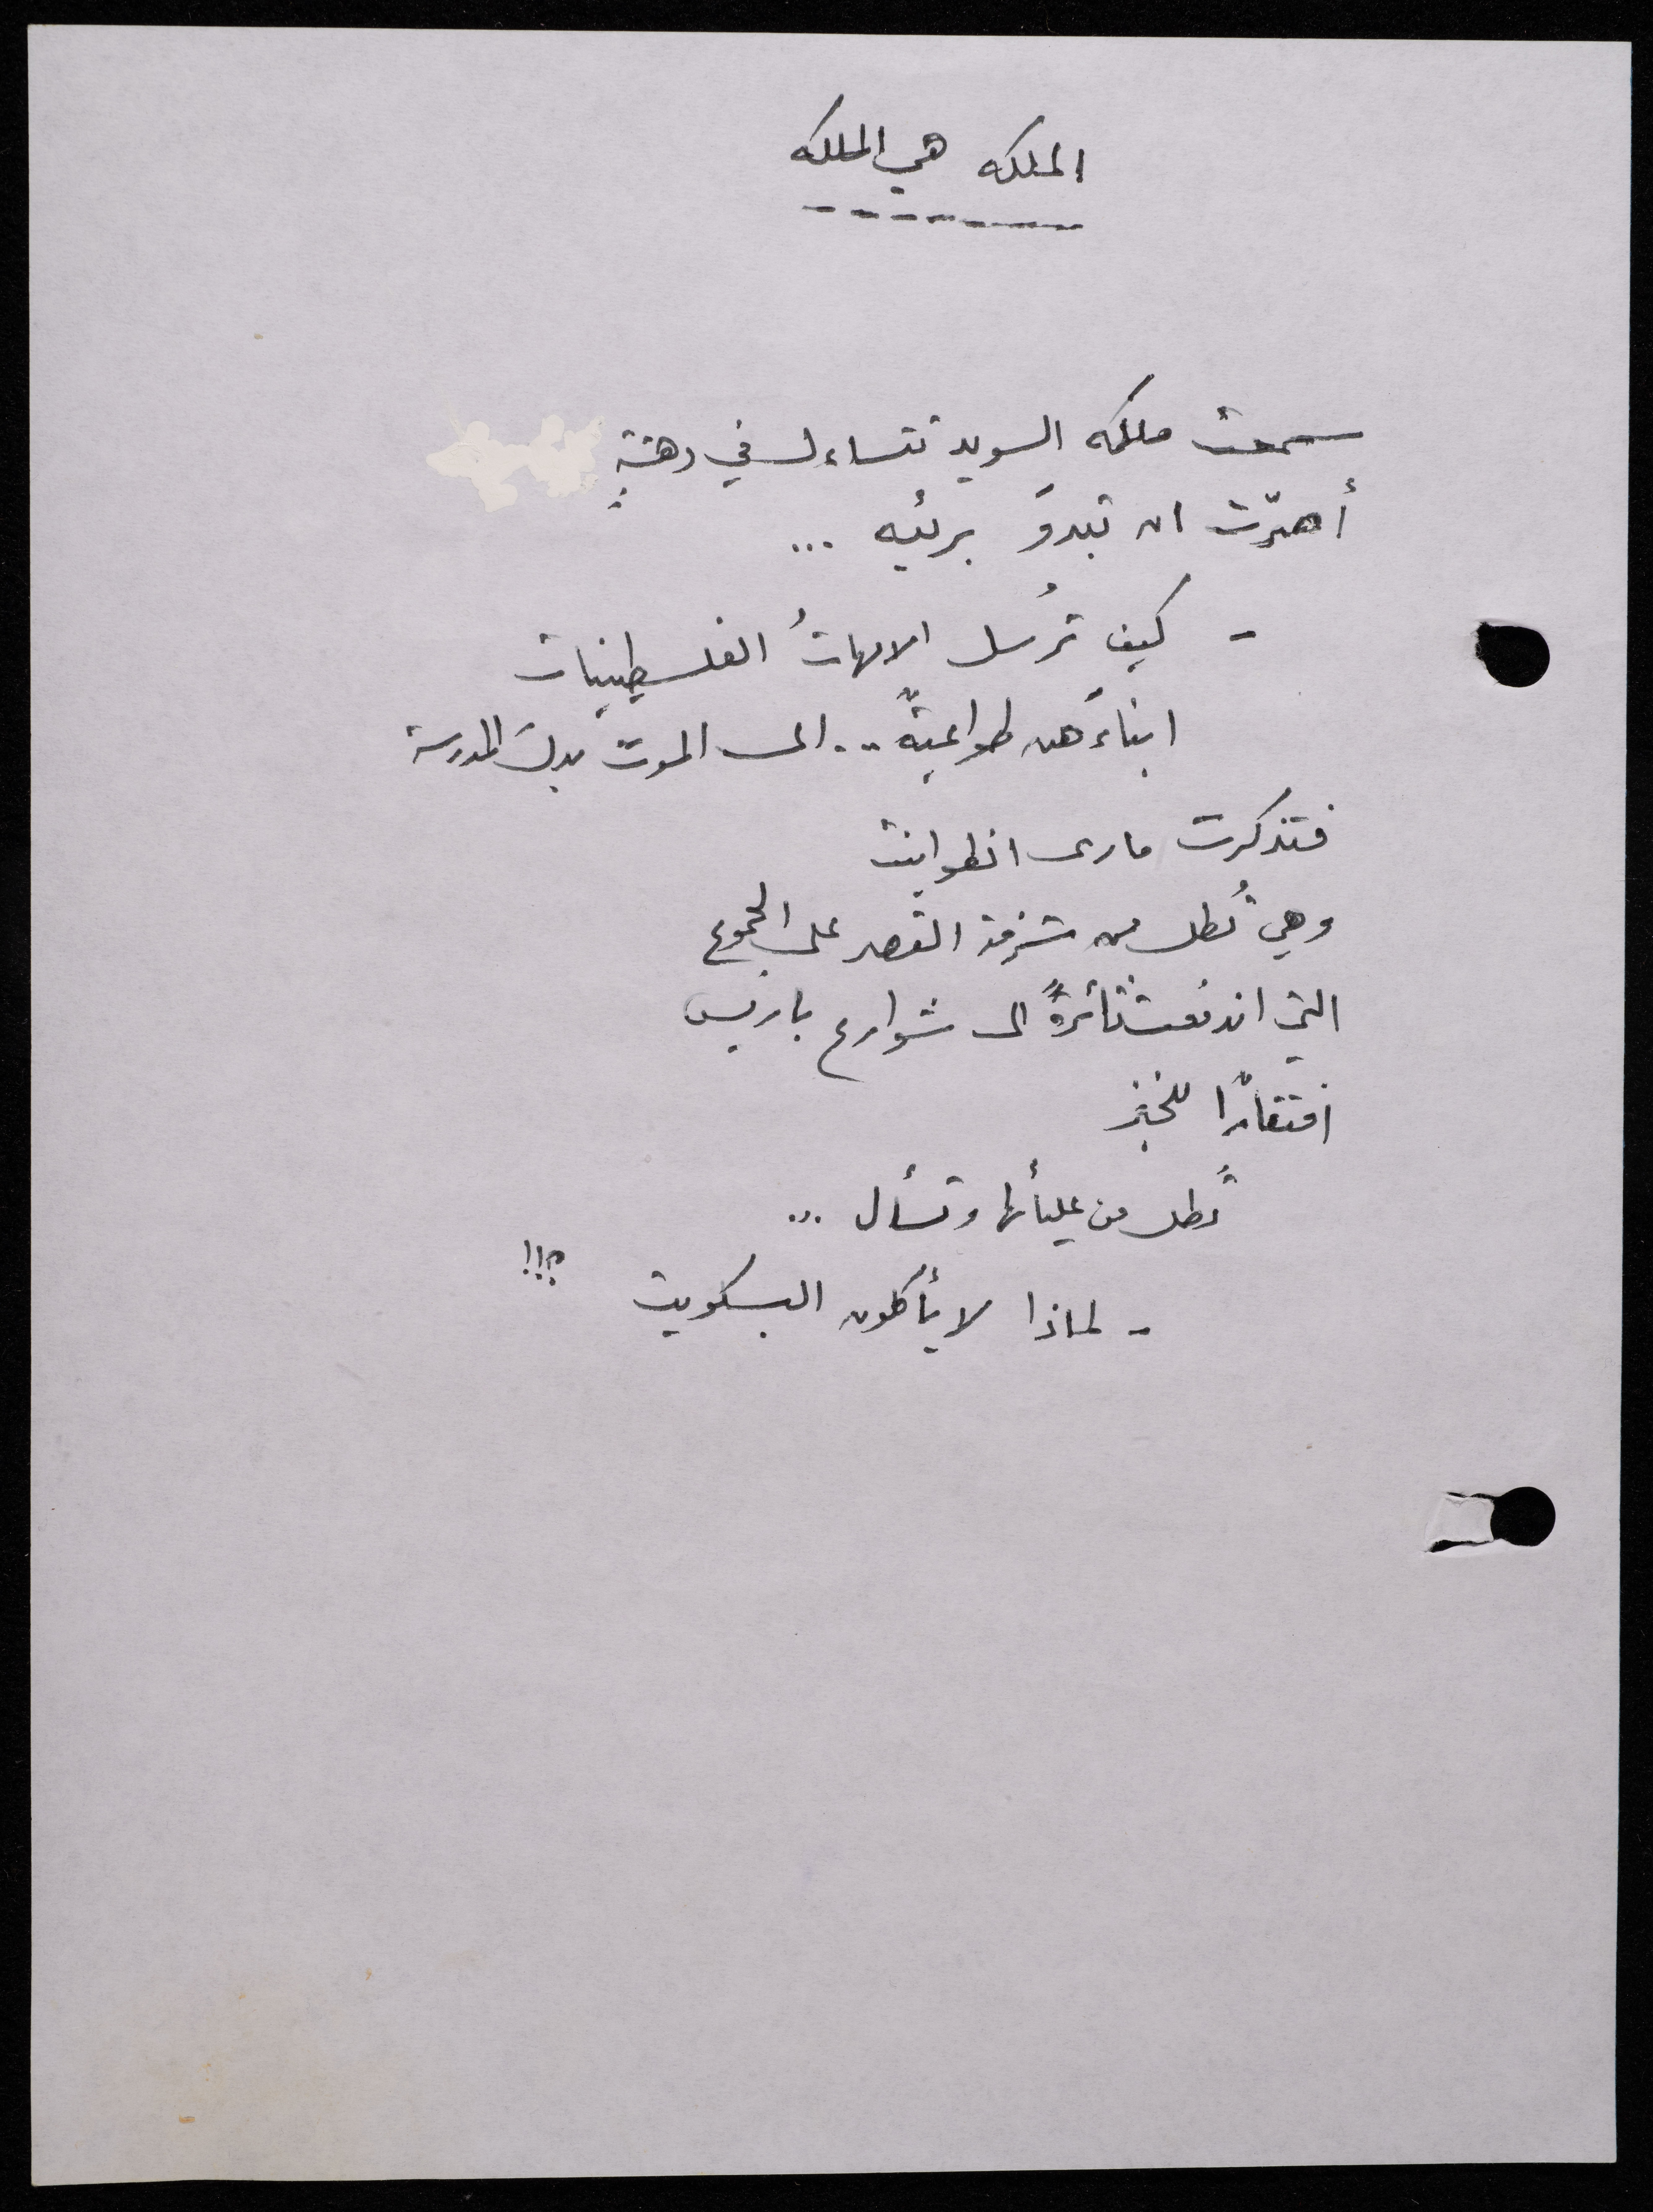 الملكه هي الملكه
سمعت ملكه السويد تتساءل في دهشةٍ
أصرّت ان تبدوَ بريئه ...
- كيف تُرسل الامهاتُ الفلسطينيات
ابناءَهن طواعيةً .. الى الموت بدلَ المدرسة
فتذكرت مارى انطوانيت
وهي تُطل من شرفة القصر على الجموع
التي اندفعت ثائرةً الى شوارع باريس
افتقادًا للخبز
تُطل من عليائها وتسأل ...
- لماذا لا يأكلون البسكويت ؟!!